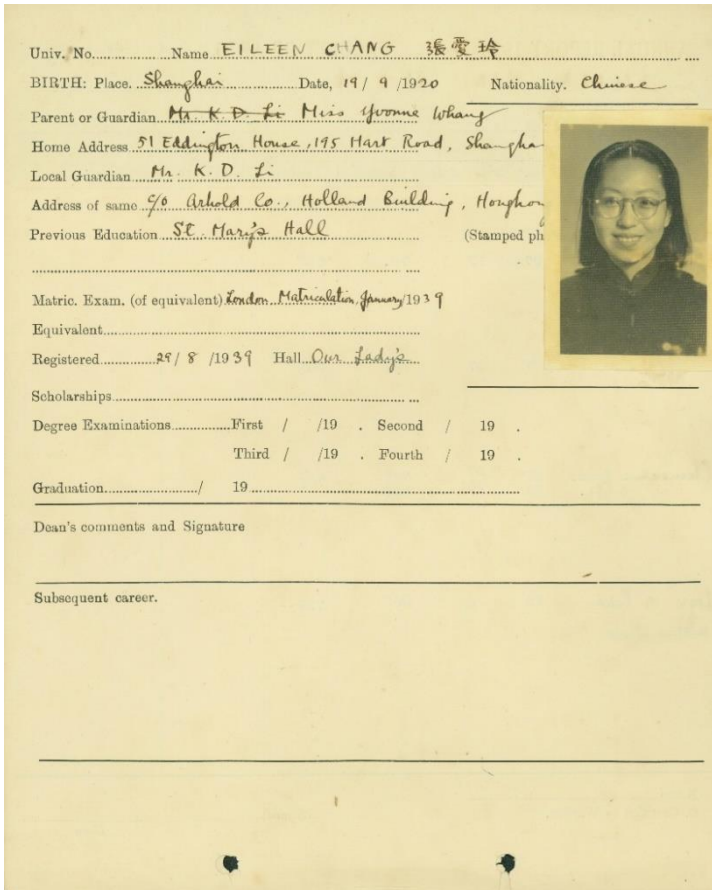 Univ. No. Name EILEEN CHANG 張愛玲
BIRTH: Place. Shanghai Date, 19/9/1920 Nationality. Chinese
Parent or Guardian Mr. K. D. Li Miss Yvonne Whang
Home Address 51 Eddington House, 195 Hart Road, Shangha
Local Guardian Mr. K. D. Li
Address of same c/o Arnhold Co., Holland Building, Hongkon
Previous Education St. Mary's Hall (Stamped ph
Matric. Exam. (of equivalent) London Matriculation, January/1939
Equivalent
Registered 29/8/1939 Hall Our Lady's
Scholarships
Degree Examinations First / /19 . Second / 19 .
Third / /19 . Fourth / 19 .
Graduation / 19
Dean's comments and Signature
Subsequent career.